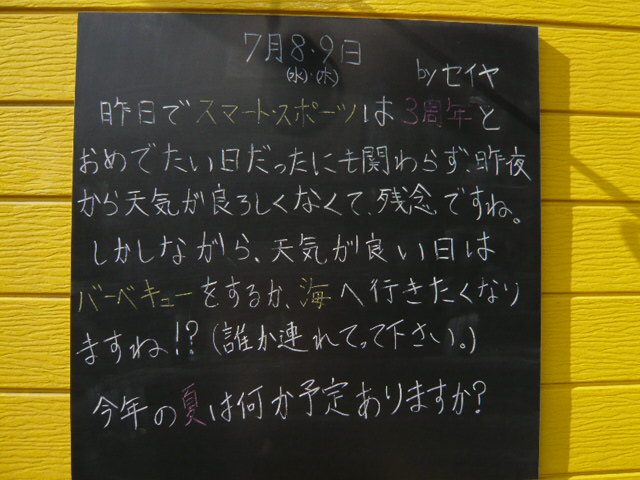 7月8・9日
(水)・(木)
byセイヤ
昨日でスマート・スポーツは3周年と
おめでたい日だったにも関わらず、昨夜
から天気が良ろしくなくて、残念ですね。
しかしながら、天気が良い日は
バーベキューをするか、海へ行きたくなり
ますね!?(誰か連れてって下さい。)
今年の夏は何か予定ありますか?